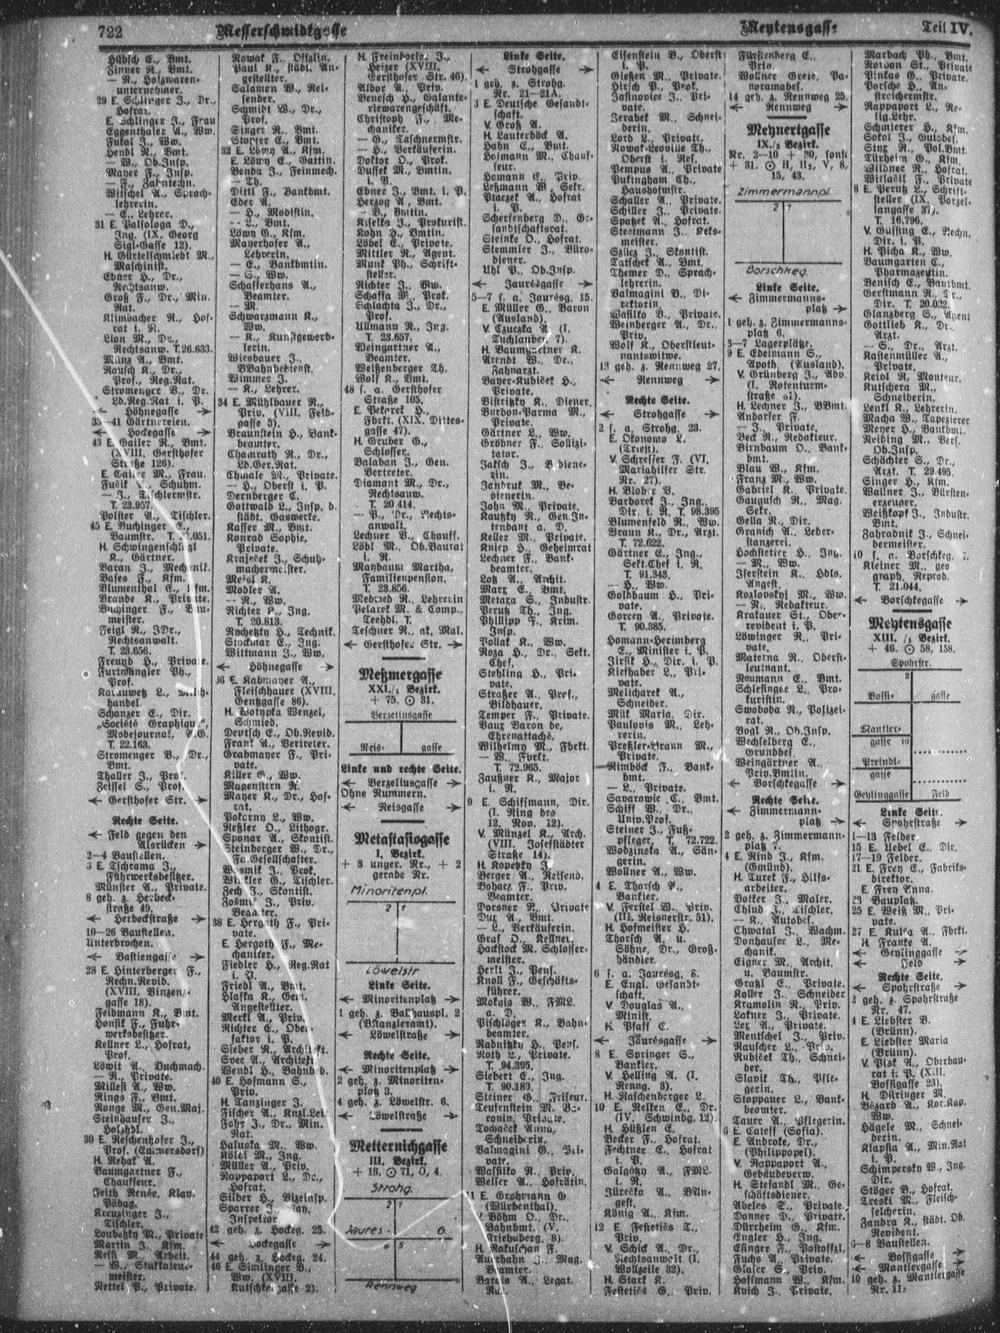 722
Messerschmidtgasse
Meytensgasse
Teil IV.
Hübsch E., Bmt.
Zinner R., Bmt.
— R., Holzwaren-
unternehmer.
29 E. Schlinger J., Dr.,
Hofrat.
E. Schlinger J., Frau
Eggenthaler A., Ww.
Fukal J., Ww.
Hendl R., Bmt.
— W., Ob.Insp.
Mayer F., Insp.
— F., Zahntechn.
Witschel A., Sprach-
lehrerin.
— E., Lehrer.
31 E. Palsologa D.,
Ing. (IX. Georg
Sigl-Gasse 12).
H. Gürtelschmiedt M.,
Maschinist.
Ebner H., Dr.,
Rechtsanw.
Groß F., Dr., Min.
Rat.
Klimbacher R., Hof-
rat i. R.
Lion M., Dr.,
Rechtsanw. T.26.633.
Münz A., Bmt.
Rausch K., Dr.,
Prof., Reg.Rat.
Stromenger B., Dr.
Ld.Reg.Rat i. P.
← Höhnegasse →
35—41 Gärtnereien.
← Hockegasse →
43 E. Gailer R., Bmt.
(XVIII, Gersthofer
Straße 126).
E. Gailer M., Frau.
Fučik J., Schuhm.
— J., Tischlermstr.
T. 23.957.
Polster A., Tischler.
45 E. Buchinger E.,
Baumstr.
H. Schwingenschlögl
K., Gärtner.
Baran J., Mechanik.
Bases F., Kfm.
Blumenthal E., Kfm.
Brande K., Private.
Buchinger F., Bau-
meister.
Feigl R., JDr.,
Rechtsanwalt.
T. 23.656.
Freund H., Private.
Furtmüngler Ph.,
Prof.
handel
Schanzer E., Dir.
„Société Graphique",
Modejournal, A.G.
T. 22.163.
Stromenger B., Dr.,
Bmt.
Thaller J., Prof.
Zeissel S., Prof.
← Gersthofer Str. →
Rechte Seite.
← Feld gegen den
Alsrücken →
2—4 Baustellen.
6 E. Tschrama J.,
Fuhrwerksbesitzer.
Münster A., Private.
8 geh. z. Herbeck-
straße 49.
← Herbeckstraße →
10—26 Baustellen.
Unterbrochen.
← Bastiengasse →
28 E. Hinterberger F.,
Rechn.Revid.
(XVIII, Vinzenz-
gasse 18).
Feldmann K., Bmt.
Honsik F., Fuhr-
werksbesitzer.
Kellner L., Hofrat,
Prof.
Löwit A., Buchmach.
— K., Private.
Millest A., Ww.
Rings F., Bmt.
Ronge M., Gen.Maj.
Steinhauser J.,
Holzhdl.
30 E. Reschenhofer J.,
Prof. (Gumersdorf)
H. Rehak A.
Baumgartner F.,
Chauffeur.
Feith Renée, Klav.
Pädag.
Kreuzinger J.,
Tischler.
Loubetzky M., Private
Martin J., Kfm.
Reiß M., Arbeit.
— W., Stukkateur-
meister.
Rettel P., Private.
Nowak F., Offzlin.
Paul K., städt. An-
gestellter.
Salamon W., Rei-
sender.
Schmidt W., Dr.,
Prof.
Singer R., Bmt.
Storfer E., Bmt.
32 E. Löwy A., Kfm.
E. Löwy E., Gattin.
Benda J., Feinmech.
— Th.
Dittl F., Bankbmt.
Eder A.
— H., Modistin.
— L., Bmt.
Löwy G., Kfm.
Mayerhofer A.,
Lehrerin.
— E., Bankbmtin.
— G., Ww.
Schafferhans A.,
Beamter.
— M.
Schwarzmann K.,
Ww.
— K., Kunstgewerb-
lerin.
Wiesbauer J.,
BBahnbedienst.
Wimmer J.
— K., Lehrer.
34 E. Mühlbauer R.,
Priv. (VIII, Feld-
gasse 3).
Braunstein H., Bank-
beamter.
Chamrath R., Dr.,
Ld.Ger.Rat.
Chwale M., Private.
— H., Oberst i. P.
Dernberger C.
Gottwald L., Insp. d.
städt. Gaswerke.
Kasser M., Bmt.
Konrad Sophie,
Private.
Kraječek J., Schuh-
machermeister.
Meisl K.
Modler A.
— R., Ww.
Richter P., Ing.
T. 20.813.
Ruchetzky H., Technik.
Stockmar E., Ing.
Wittmann J., Ww.
← Höhnegasse →
36 E. Kabmayer A.,
Fleischhauer (XVIII,
Gentzgasse 86).
H. Wotypka Wenzel,
Schmied.
Deutsch E., Ob.Revid.
Frank A., Vertreter.
Grabmayer F., Pri-
vate.
Killer G., Ww.
Magenstern R.
Mayer K., Dr., Hof-
rat.
Pokorny L., Ww.
Reßler O., Lithogr.
Sponar A., Skontist.
Steinberger W., Dr.,
Fa.Gesellschafter.
Wosmik J., Prok.
Winkler G., Tischler.
Zech J., Skontist.
Zosmi J., Priv.
Beamter.
38 E. Hergoth F., Pri-
vate.
E. Hergoth F., Me-
chaniker.
Fiedler H., Reg.Rat
i. P.
Friedl A., Bmt.
Hlaska K., Gem.
Angestellter.
Merkl A., Priv.
Richter E., Ober-
faktor i. P.
Sieber R., Architekt.
Svec A., Architekt.
Wendl H., Bahnbed.
40 E. Hofmann S.,
Priv.
H. Tanzinger J.
Fischer A., Knzl.Leit.
Fohr J., Dr., Min.
Rat.
Haluska M., Ww.
Kölbl M., Ing.
Müller A., Priv.
Rappaport L., Dr.,
Hofrat.
Silber H., Vizeinsp.
Sparrer J., Jan.
Inspektor
42 geh. z. Hockeg. 25.
← Hockegasse →
44 geh. z. Hockeg. 24.
46 E. Simlinger B.,
Ww. (XVIII,
Kutschkergasse 2).
H. Freindorfs J.,
Heizer (XVIII,
Gersthofer Str. 46).
Aldor A., Priv.
Benesch H., Galante-
riewarengeschäft.
Christoph F., Me-
chaniker.
— G., Taschnermstr.
— H., Verkäuferin.
Doktor O., Prok.
Dussek M., Bmtin.
i. P.
Ebner J., Bmt. i. P.
Herzog A., Bmt.
— B., Bmtin.
Kiselka J., Prokurist.
Kohn H., Bmtin.
Löbel E., Private.
Mittler R., Agent.
Munk Ph., Schrift-
steller.
Richter J., Ww.
Schaffa M., Prok.
Schlachta J., Dr.,
Prof.
Ullmann R., Ing.
T. 23.657.
Weingartner A.,
Beamter.
Weißenberger Th.
Wolf K., Bmt.
48 s. a. Gersthofer
Straße 105.
E. Pekarek H.,
Fbrkt. (XIX, Dittes-
gasse 47).
H. Gruber G.,
Schlosser.
Balaban J., Gen.
Vertreter.
Diamant M., Dr.,
Rechtsanw.
T. 20 414.
— P., Dr., Rechts-
anwalt.
Lechner B., Chauff.
Löbl M., Ob.Baurat
i. R.
Maybaum Martha,
Familienpension.
T. 23.856.
Medved R., Lehrerin
Pelarek M. & Comp.,
Teehdl. T.
Teschner R., ak. Mal.
← Gersthofer Str. →
Meßmergasse
XXI./1 Bezirk.
+ 75. ⊙ 31.
Berzeliusgasse
Reis- gasse
Linke und rechte Seite.
← Berzeliusgasse →
Ohne Nummern.
← Reisgasse →
Metastasiogasse
I. Bezirk.
+ 3 unger. Nr., + 2
gerade Nr.
Minoritenpl.
2 1
Löwelstr
Linke Seite.
← Minoritenplatz →
1 geh. z. Ballhauspl. 2
(Bkanzleramt).
← Löwelstraße →
Rechte Seite.
← Minoritenplatz →
2 geh. z. Minoriten-
platz 3.
4 geh. z. Löwelstr. 6.
← Löwelstraße →
Metternichgasse
III. Bezirk.
+ 18, ⊙ 71, O, 4.
Strohg.
2 1
Jaurès- G.
6 5
Rennweg
Linke Seite.
← Strohgasse →
1 geh. z. Strohg.
Nr. 21—21A.
3 E. Deutsche Gesandt-
schaft.
V. Groß A.
H. Lauterböck A.
Hahn E., Bmt.
Hofmann M., Chauf-
feur.
Homann E., Priv.
Leßmann W., Sekr.
Ptaczek A., Hofrat
i. P.
Scherfenberg D., Ge-
sandtschaftsrat.
Steinke O., Hofrat.
Stemmler J., Büro-
diener.
Uhl P., Ob.Insp.
← Jaurèsgasse →
5—7 s. a. Jaurèsg. 15.
E. Müller G., Baron
(Ausland).
V. Czuczka A. (I.
Tuchlauben 7).
H. Baumgartner K.
Arendt W., Dr.,
Zahnarzt.
Bayer-Kubiček H.,
Private.
Bistritzky K., Diener.
Burbon-Parma M.,
Private.
Gärtner L., Ww.
Gröbner F., Sollizi-
tator.
Jaksch J., Bediene-
rin.
Jandruk M., Be-
dienerin.
John M., Private.
Kautzky R., Gen.In-
tendant a. D.
Keller M., Private.
Kniep H., Geheimrat
Lechner F., Bank-
beamter.
Lotz A., Archit.
Marx E., Bmt.
Metaxa S., Industr.
Perutz Th., Ing.
Philipp F., Krim.
Insp.
Pollak K., Ww.
Roza H., Dr., Sekt.
Chef.
Stehling H., Pri-
vate.
Straßer A., Prof.,
Bildhauer.
Temper F., Private.
Vaux Baron de,
Ehrenattaché.
Wilhelmy M., Fbrkt.
— W., Fbrkt.
T. 72.965.
Zaußner K., Major
i. R.
9 E. Schiffmann, Dir.
(I. Ring des
12. Nov. 12).
V. Münzel K., Arch.
(VIII. Josefstädter
Straße 14).
H. Kopetzky J.
Berger A., Reisend.
Boharz F., Priv.
Beamter.
Dorsner R., Private
Dux A., Bmt.
— L., Verkäuferin.
Graf O., Kellner.
Hackstock M. Schlosser-
meister.
Herlt J., Pens.
Knoll F., Geschäfts-
führer.
Mokois W., FML.
a. D.
Pischlöger K., Bahn-
beamter.
Radnitzky H., Pens.
Roth L., Private.
T. 94.395.
Siebert C., Ing.
T. 90.183.
Steiner G., Friseur.
Teufenstein M. Ba-
ronin, Private.
Todaček Anna,
Schneiderin.
Valmagini G., Pri-
vate.
Wasilko R., Priv.
Weller A., Hofrätin.
11 E. Grohmann G.
(Würbenthal).
V. Böhm O., Dr.,
Bahnbmt. (V.
Kriehuberg. 8).
H. Rakuschan F.
Auerhahn J., Mag.
Beamter.
Barais A., Legat.
Rat.
Eisenstein B., Oberst
i. P.
Gleßen M., Private.
Hirsch P., Prok.
Jasnovice J., Pri-
vate.
Jerabek M., Schnei-
derin.
Lorb L., Private.
Nowak-Loville Th.,
Oberst i. Res.
Pempus A., Private
Pukingham Ch.,
Haushofmstr.
Schaller A., Private.
Schiller J., Private.
Spatzek A., Hofrat.
Stegtmann J., Keks-
meister.
Szücz J., Skontist.
Tatschek A., Bmt.
Themer D., Sprach-
lehrerin.
Valmagini B., Di-
rektorin.
Wasilko B., Private.
Weinberger A., Dr.,
Priv.
Wolf K., Oberstleut-
nantswitwe.
13 geh. z. Rennweg 27.
← Rennweg →
Rechte Seite.
← Strohgasse →
2 s. a. Strohg. 23.
E. Ökonomo L.
(Triest).
V. Schreffer F. (VI,
Mariahilfer Str.
Nr. 27).
H. Blober V.
Barborek J., Ing.,
Dir. i. R. T. 98.395
Blumenfeld R., Ww.
Braun K., Dr., Arzt.
T. 72.622.
Gärtner E., Ing.,
Sekt.Chef i. R.
T. 91.343.
— H., Ww.
Goldbaum H., Pri-
vate.
Gorcey A., Private.
T. 90.385.
Homann-Herimberg
E., Minister i. P.
Jirsik H., Dir. i. P.
Kiefhaber L., Pri-
vate.
Melicharek A.,
Schneider.
Mük Maria, Dir.
Paulovis M., Leh-
rerin.
Preßler-Braun M.,
Private.
Rimböck F., Bank-
bmt.
— L., Private.
Savarowic E., Bmt.
Schiff W., Dr.,
Univ.Prof.
Steiner J., Fuß-
pfleger, T. 72.722.
Wodzinska A., Sän-
gerin.
Wollner A., Ww.
4 E. Thorsch A.,
Bankier.
V. Ferstel W., Priv.
(III, Reisnerstr. 51).
H. Hofmeister H.
Thorsch A. u.
Söhne, Dr., Groß-
händler.
6 s. a. Jaurèsg. 8.
E. Engl. Gesandt-
schaft.
V. Douglas A.,
Minist.
K. Pfaff C.
← Jaurèsgasse →
8 E. Springer S.,
Bankier.
V. Helling A. (I.
Renng. 3).
H. Raschenberger L.
10 E. Nelken E., Dr.
(IV., Schwindg. 12)
H. Hüßlen E.
Becker F., Hofrat.
Fechtner E., Hofrat
i. P.
Galgótzy A., FML.
i. R.
Jüreska A., BAn-
gest.
König A., Kfm.
12 E. Festetics T.,
Priv.
V. Schick A., Dr.,
Rechtsanwalt (I.
Wollzeile 32).
H. Stark K.
Festetics G., Priv.
Fürstenberg E.,
Priv.
Wollner Grete, Pa-
noramabes.
14 geh. z. Rennweg 25.
← Rennweg →
Meynertgasse
IX./2 Bezirk.
Nr. 2—10 + 20, sonst
+ 31. ⊙ H, II₂, V, 8,
15, 43.
Zimmermannpl.
2 1
Borschkeg.
Linke Seite.
← Zimmermanns-
platz →
1 geh. z. Zimmermanns-
platz 6.
3—7 Lagerplätze.
9 E. Edelmann S.,
Apoth. (Ausland).
V. Grünberg J., Adv.
(I. Rotenturm-
straße 31).
H. Lechner J., BBmt.
Andorfer F.
— J., Private.
Beck R., Redakteur.
Birnbaum O., Bank-
bmt.
Blau W., Kfm.
Franz M., Ww.
Gabriel K., Private.
Gaugusch R., Mag.
Sekr.
Gella R., Dir.
Granich A., Leder-
stanzerei.
Hochstetter H., Ing.
— M., Ww.
Iserstein K., Hdls.
Angest.
Kozlovskj M., Ww.
— R., Redakteur.
Krakauer St., Ober-
revident i. P.
Löwinger R., Pri-
vate.
Materna R., Oberst-
leutnant.
Neumann E., Bmt.
Schlesinger L., Pro-
kuristin.
Swoboda R., Polizei-
rat.
Vogl R., Ob.Insp.
Wechselberg E.,
Grundbes.
Weingärtner A.,
Priv.Bmtin.
← Borschkegasse →
Rechte Seite.
← Zimmermann-
platz →
2 geh. z. Zimmermann-
platz 7.
4 E. Rind J., Kfm.
(Gmünd).
H. Turek F., Hilfs-
arbeiter.
Botker J., Maler.
Chlud J., Tischler.
— K., Autobes.
Chwatal J., Wachm.
Donhauser L., Me-
chanik.
Eigner M., Archit.
u. Baumstr.
Graßl E., Private.
Koller J., Schneider
Kramolin R., Priv.
Lakner J., Private.
Lex A., Private.
Mentschel J., Priv.
Rauscher L., Priv.
Rubicek Th., Schnei-
der.
Slavik Th., Pfle-
gerin.
Stoppauer L., Bank-
beamter.
Tauer A., Pflegerin.
6 E. Caleff (Sofia).
E. Androke, Dr.,
(Philippopel).
V. Rappaport A.,
Gebäudeverw.
H. Stefandl M., Ge-
schäftsdiener.
Abeles T., Private.
Donner D., Private.
Dürrheim G., Kfm.
Engler H., Ing.
Efinger F., Postoffzl.
Fuchs A., Private.
Glaser S., Priv.
Hoffmann W., Kfm.
Kvich J., Private.
Marbach Ph., Bmt.
Rorvon St., Private
Pinkas G., Private.
Porsche H., An-
streichermstr.
Rappaport L., Re-
lig.Lehr.
Schmierer H., Kfm.
Sokol J., Gutsbes.
Sinz R., Pol.Bmt.
Türheim G., Kfm.
Wildner R., Hofrat.
Witladil F., Private
8 E. Perutz L., Schrift-
steller (IX, Porzel-
langasse 37).
T. 16.796.
V. Gulling E., Rechn.
Dir. i. P.
H. Picha K., Ww.
Baumgarten E.,
Pharmazeutin.
Benisch E., Bankbmt.
Gerstmann R., Dr.,
Dir. T. 20.032.
Glanzberg S., Agent
Gottlieb K., Dr.,
Arzt.
— S., Dr., Arzt.
Kastenmüller A.,
Private.
Keidl R., Monteur.
Kutschera M.,
Schneiderin.
Lenkl K., Lehrerin.
Macha W., Tapezierer
Meyer H., Bankbmt.
Neiding M., Vers.
Ob.Insp.
Schächter S., Dr.,
Arzt. T. 29.495
Singer H., Kfm.
Wallner J., Bürsten-
erzeuger.
Weißkopf J., Industr.
Bmt.
Zahradnik J., Schnei-
dermeister.
10 s. a. Borschkeg. 7.
Kleiner M., geo
graph. Reprod.
T. 21.044.
← Borschkegasse →
Meytensgasse
XIII. /1 Bezirk.
+ 46. ⊙ 58, 158.
Spohrstr.
2
Bossi- gasse
Mantler-
gasse 10
Preindl-
gasse
Geylinggasse Feld
Linke Seite.
← Spohrstraße →
1—13 Felder.
15 E. Uebel E., Dir.
17—19 Felder.
21 E. Frey E., Fabriks-
direktor.
E. Frey Anna.
23 Bauplatz.
25 E. Weiß M., Pri-
vate.
27 E. Kulka A., Fbrkt.
H. Franke A.
← Geylinggasse →
← Feld →
Rechte Seite.
← Spohrstraße →
2 geh. z. Spohrstraße
Nr. 47.
4 E. Liebster B.
(Brünn).
E. Liebster Maria
(Brünn).
V. Pisk A., Oberbau-
rat i. P. (XIII.
Bossigasse 23).
H. Ostringer M.
Bézard A., Kor.Kap.
Ww.
Hägele M., Schnei-
derin.
Klapsia A., Min.Rat
i. P.
Schimpersky W., Ing.
Dir.
Stöger B., Hofrat.
Treski M., Fleisch-
selcherin.
Zandra K., städt. Ob.
Revident.
6—8 Baustellen.
← Bossigasse →
← Mantlergasse →
10 geh. z. Mantlergasse
Nr. 11.